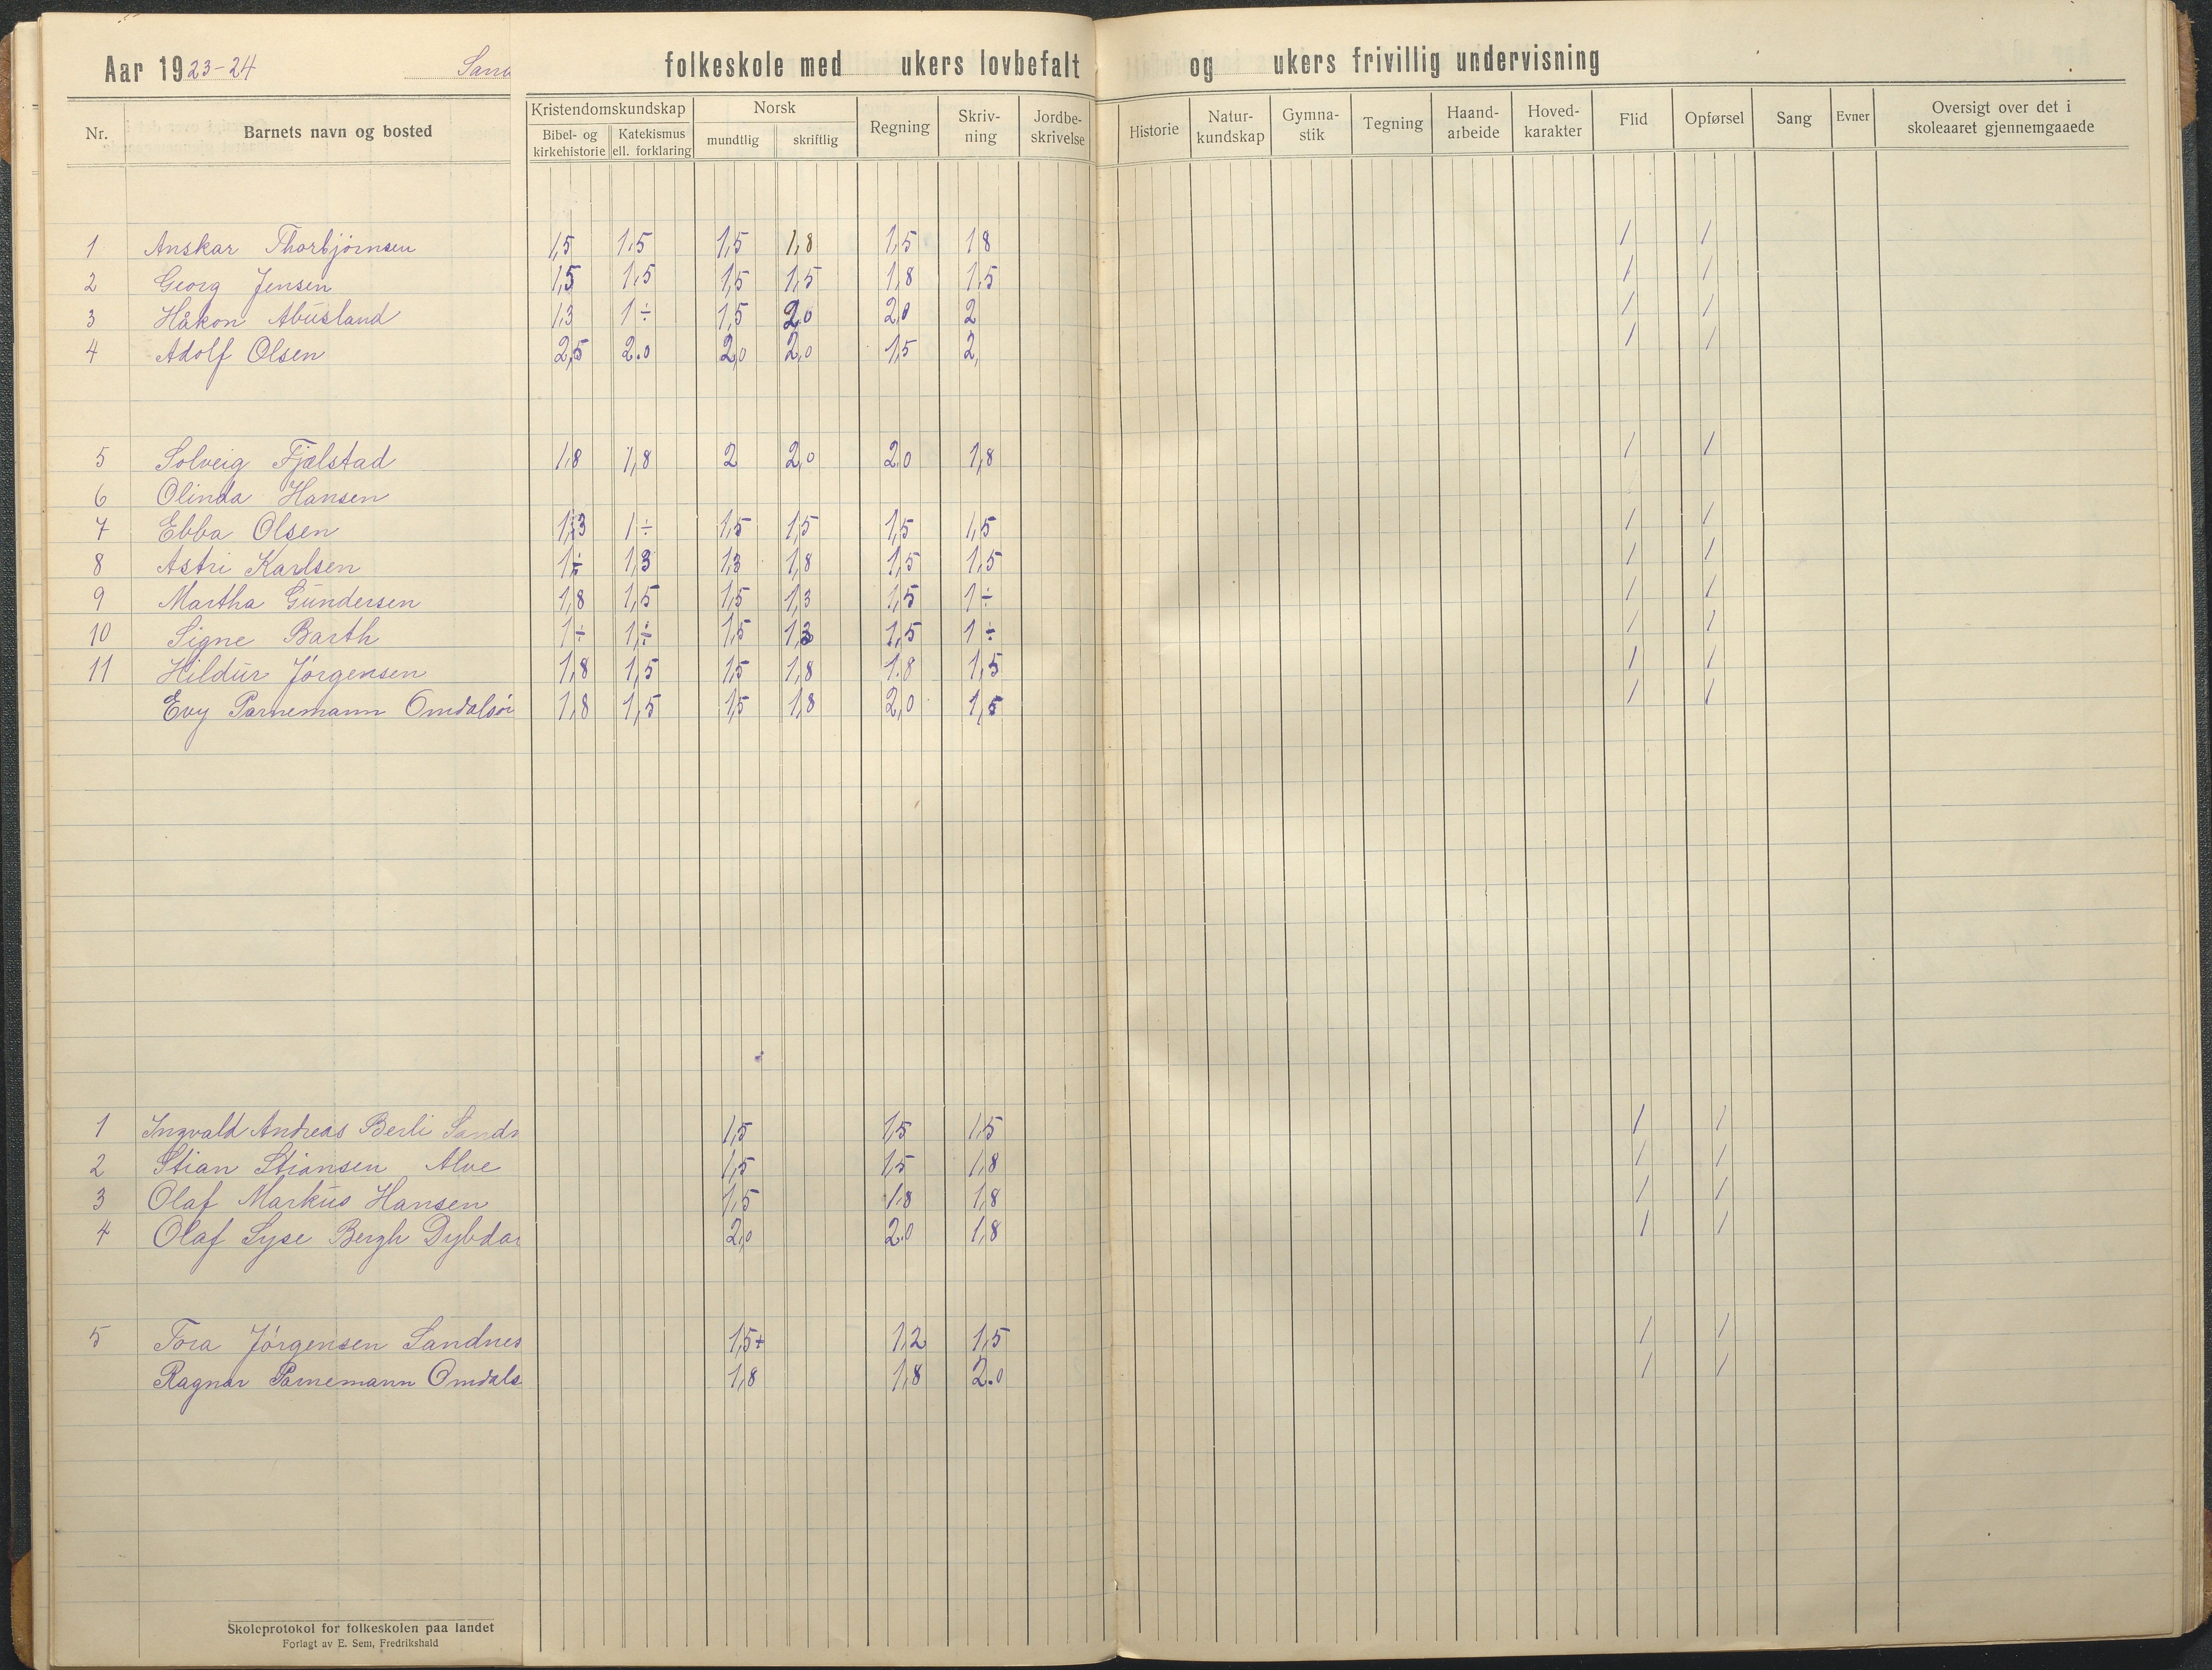 Aar 1923-24 Sand folkeskole med ukers lovbefalt og ukers frivillig undervisning
Nr. Barnets navn og bosted Kristendomskundskap Bibel- og kirkehistorie Katekismus ell. forklaring Norsk mundtlig skriftlig Regning Skriv-ning Jordbe-skrivelse Historie Natur-kundskap Gymna-stik Tegning Haand-arbeide Hoved-karakter Flid Opførsel Sang Evner Oversigt over det i skoleaaret gjennemgaaede
1 Anskar Thorbjørnsen 1,5 1.5 1,5 1,8 1,5 18 1 1
2 Georg Jensen 1,5 1,5 1,5 1,5 1,8 1,5 1 1
3 Håkon Abusland 1,3 1÷ 1,5 2,0 2,0 2 1 1
4 Adolf Olsen 2,5 2.0 2,0 2,0 1,5 2, 1 1
5 Solveig Fjælstad 1,8 1,8 2 2,0 2,0 1,8 1 1
6 Olinda Hansen
7 Ebba Olsen 1,3 1÷ 1,5 1,5 1,5 1,5 1 1
8 Astri Karlsen 1÷ 1,3 1,3 1,8 1,5 1,5 1 1
9 Martha Gundersen 1,8 1,5 1,5 1,3 1,5 1÷ 1 1
10 Signe Barth 1÷ 1÷ 1,5 1,3 1,5 1÷ 1 1
11 Hildur Jørgensen 1,8 1,5 1,5 1,8 1.8 1,5 1 1
Evy Parnemann Omdalsør 1,8 1,5 1,5 1,8 2,0 1,5 1 1
1 Ingvald Andreas Berli Sandn 1,5 1,5 1,5 1 1
2 Stian Stiansen Alve 1,5 1,5 1,8 1 1
3 Olaf Markus Hansen 1,5 1.8 1,8 1 1
4 Olaf Syse Bergh Dybda 2,0 2.0 1,8 1 1
5 Tora Jørgensen Sandnes 1,5+ 1,2 1,5 1 1
Ragnar Parnemann Omdals 1,8 1,8 2.0 1 1
Skoleprotokol for folkeskolen paa landet
Forlagt av E. Sem, Fredrikshald